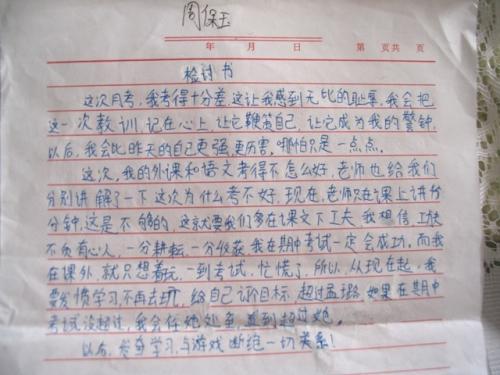 周保玉
年 月 日 第 页共 页
检讨书
这次月考,我考得十分差,这让我感到无比的耻辱,我会把
这一次教训,记在心上,让它鞭策自己,让它成为我的警钟,
以后,我会比昨天的自己更强,更厉害,哪怕只是一点点。
这次,我的外课和语文考得不怎么好,老师也给我们
分别讲解了一下这次为什么考不好,现在,老师只在课上讲份
分钟,这是不够的,这就要我们多在课文下工夫,我想信工快
不负有心人,一分耕耘,一分收获,我在期中考试一定会成功,而我
在课外,就只想着玩,一到考试,忙慌了,所以,从现在起,我
要发愤学习,不再去玩,给自己订个目标,超过孟璐,如果在期中
考试没超过,我会任她处罚,直到超过她。
以后,发奋学习,与游戏断绝一切关系!